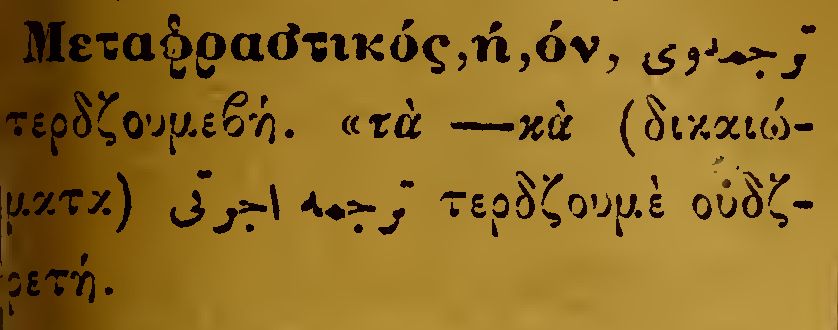 Μεταφραστικός,ή,όν, ترجمه‌وی
τερδζουμεβή. «τὰ —κὰ (δικαιώ-
ματα) ترجمه اجرتی τερδζουμὲ οὐδζ-
ρετή.